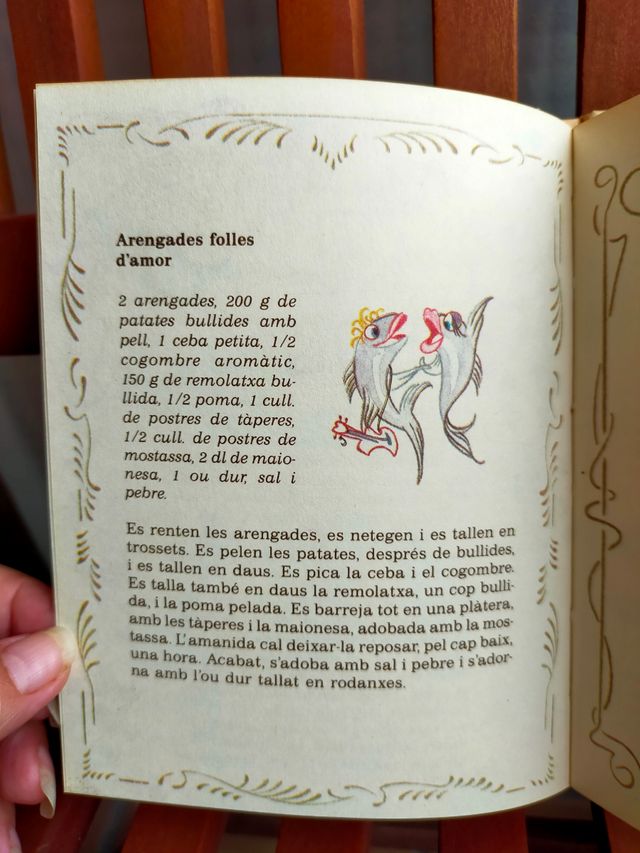 Arengades folles
d'amor
2 arengades, 200 g de
patates bullides amb
pell, 1 ceba petita, 1/2
cogombre aromàtic,
150 g de remolatxa bu-
llida, 1/2 poma, 1 cull.
de postres de tàperes,
1/2 cull. de postres de
mostassa, 2 dl de maio-
nesa, 1 ou dur, sal i
pebre.
Es renten les arengades, es netegen i es tallen en
trossets. Es pelen les patates, després de bullides,
i es tallen en daus. Es pica la ceba i el cogombre.
Es talla també en daus la remolatxa, un cop bulli-
da, i la poma pelada. Es barreja tot en una plàtera,
amb les tàperes i la maionesa, adobada amb la mos-
tassa. L'amanida cal deixar-la reposar, pel cap baix,
una hora. Acabat, s'adoba amb sal i pebre i s'ador-
na amb l'ou dur tallat en rodanxes.